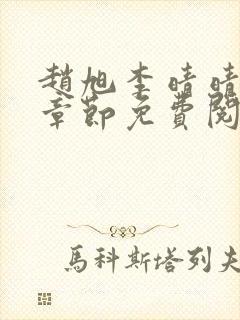 趙旭李晴晴
章節免費閱
馬科斯塔列夫